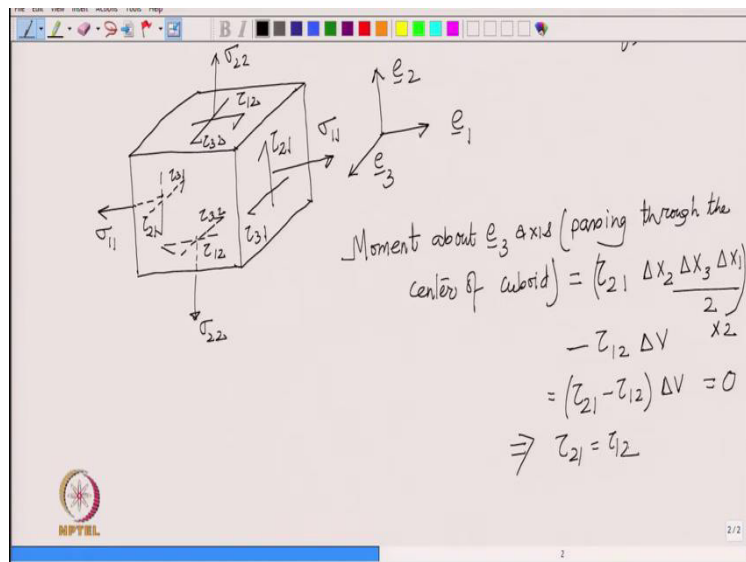 File Edit View Insert Actions Tools Help
B I
σ₂₂
τ₁₂
τ₃₂
e₂
τ₂₁
σ₁₁
e₁
e₃
τ₃₁
τ₃₁
τ₂₁
σ₁₁
τ₃₂
τ₁₂
σ₂₂
Moment about e₃ axis (passing through the
center of cuboid) = (τ₂₁ Δx₂ Δx₃ Δx₁/2)
x2
- τ₁₂ ΔV
= (τ₂₁ - τ₁₂) ΔV = 0
⇒ τ₂₁ = τ₁₂
NPTEL
2/2
2